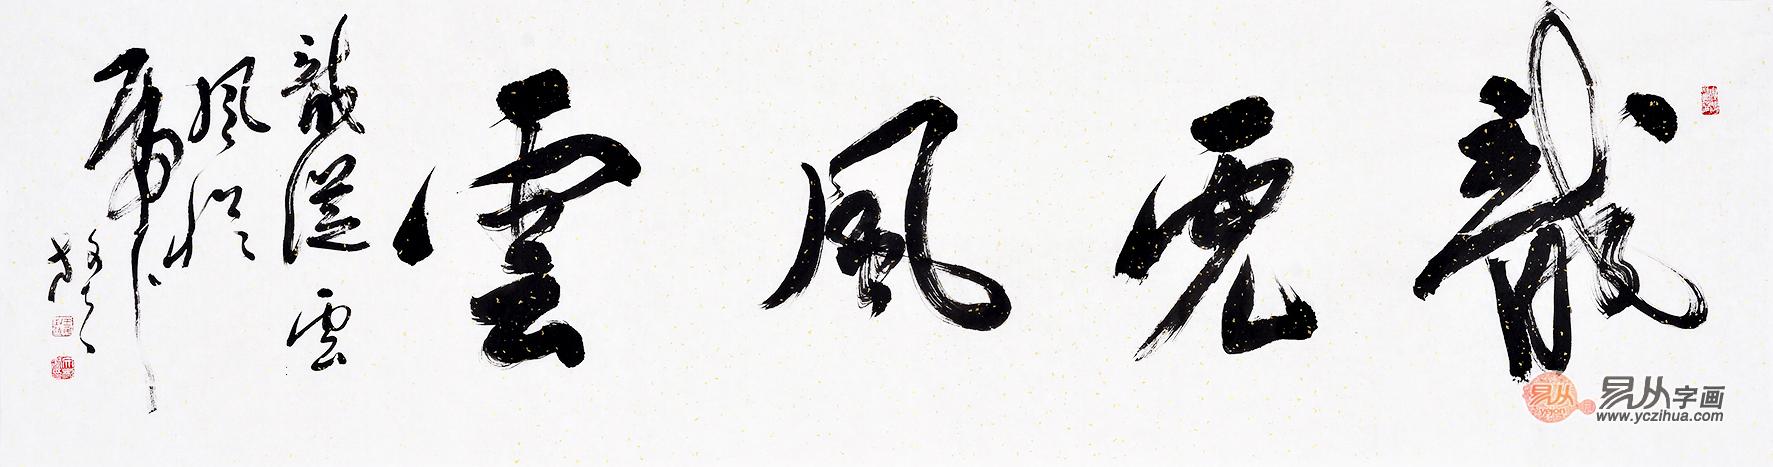 龍虎風雲
龍從雲
風從
虎
易从
易从字画
www.yczihua.com